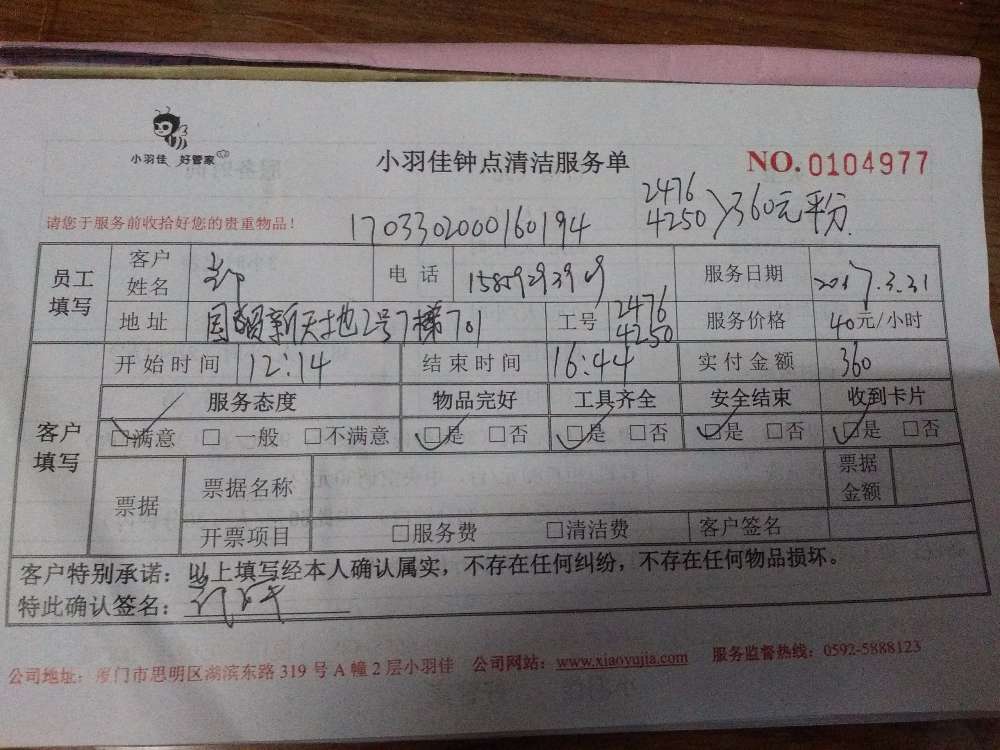 小羽佳 好管家
小羽佳钟点清洁服务单
NO. 0104977
请您于服务前收拾好您的贵重物品！
1703302000160194
2476
4250 } 360元平分.
员工填写 客户姓名 电话 服务日期 2017.3.31
地址 国贸新天地2号7梯701 工号 2476 4250 服务价格 40元/小时
客户填写 开始时间 12:14 结束时间 16:44 实付金额 360
服务态度 物品完好 工具齐全 安全结束 收到卡片
☑满意 □ 一般 □不满意 ☑是 □否 ☑是 □否 ☑是 □否 ☑是 □否
票据 票据名称 票据金额
开票项目 □服务费 □清洁费 客户签名
客户特别承诺：以上填写经本人确认属实，不存在任何纠纷，不存在任何物品损坏。
特此确认签名：
公司地址：厦门市思明区湖滨东路 319 号 A 幢 2 层小羽佳 公司网站：www.xiaoyujia.com 服务监督热线：0592-5888123